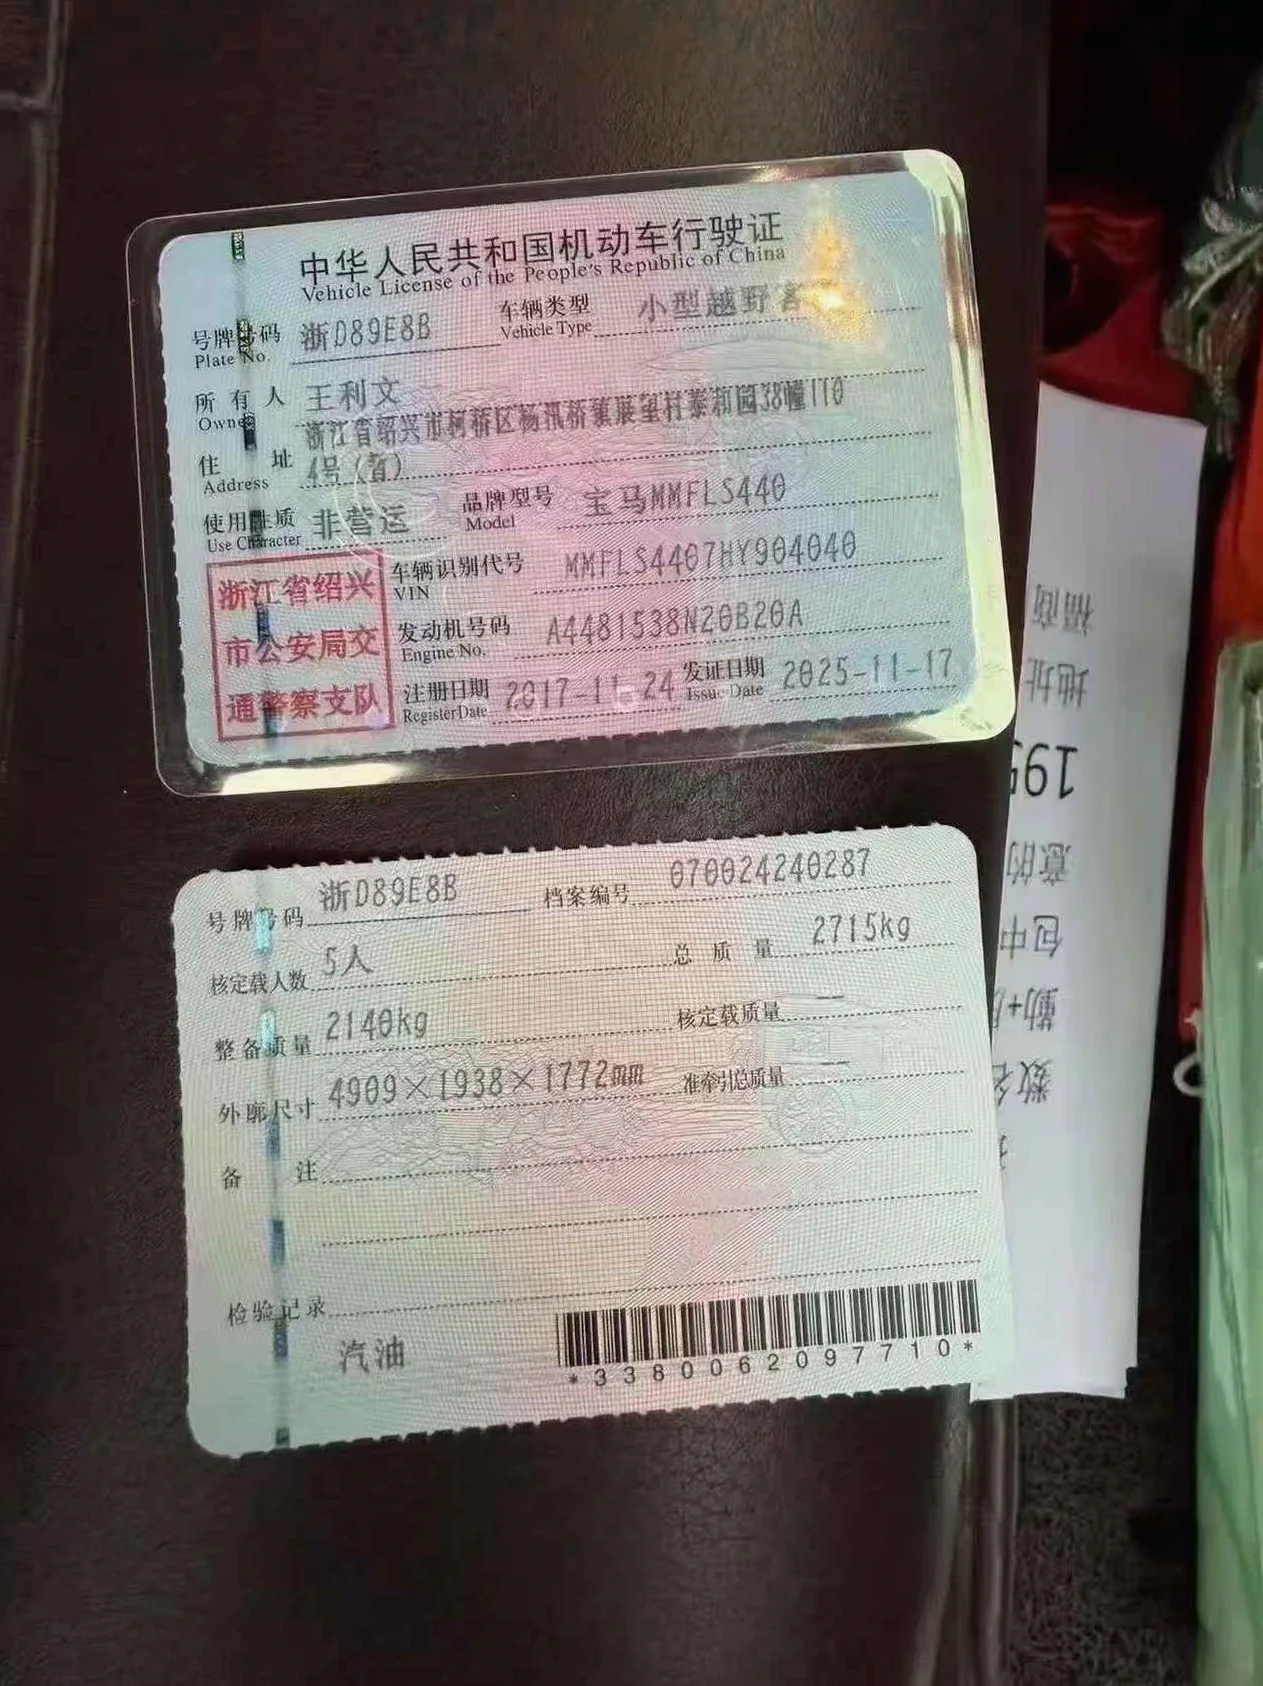 中华人民共和国机动车行驶证
Vehicle License of the People's Republic of China
号牌号码 浙D89E8B 车辆类型 小型越野客
Plate No. Vehicle Type
所有人 王利文
Owner
浙江省绍兴市柯桥区杨汛桥镇展望村泰和园38幢110
住址 4号(首)
Address
使用性质 非营运 品牌型号 宝马MMFLS440
Use Character Model
浙江省绍兴
市公安局交
通警察支队
车辆识别代号 MMFLS4407HY904040
VIN
发动机号码 A4481538N20B20A
Engine No.
注册日期 2017-11-24 发证日期 2025-11-17
Register Date Issue Date
号牌号码 浙D89E8B 档案编号 070024240287
核定载人数 5人 总质量 2715kg
整备质量 2140kg 核定载质量 --
外廓尺寸 4909×1938×1772mm 准牵引总质量 --
备注
检验记录
汽油
*3380062097710*
福商
地址
195
意的
包中
勤+
数名